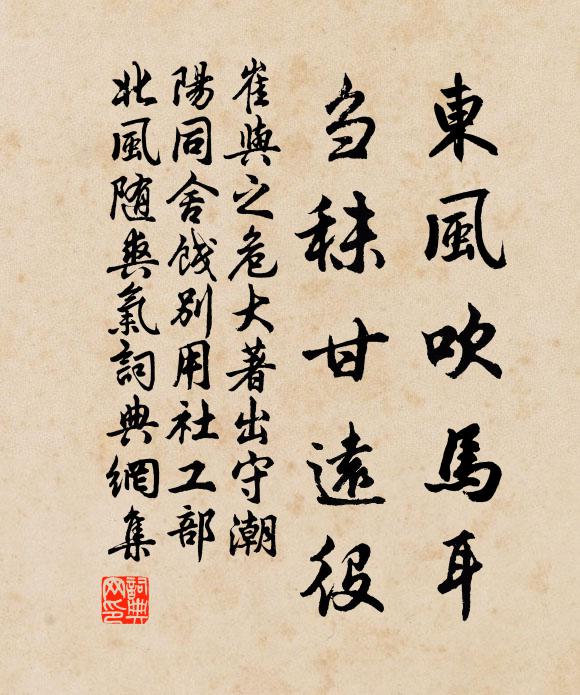 東風吹馬耳
芻秣甘遠役
崔與之危大著出守潮
陽同舍餞別用社工部
北風随爽氣詞典網集
詞典网印